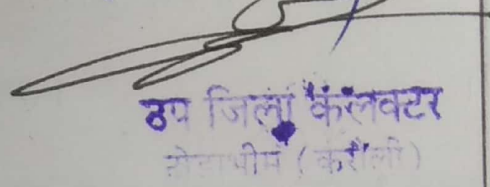 उप जिला कलक्टर
टोडाभीम (करौली)